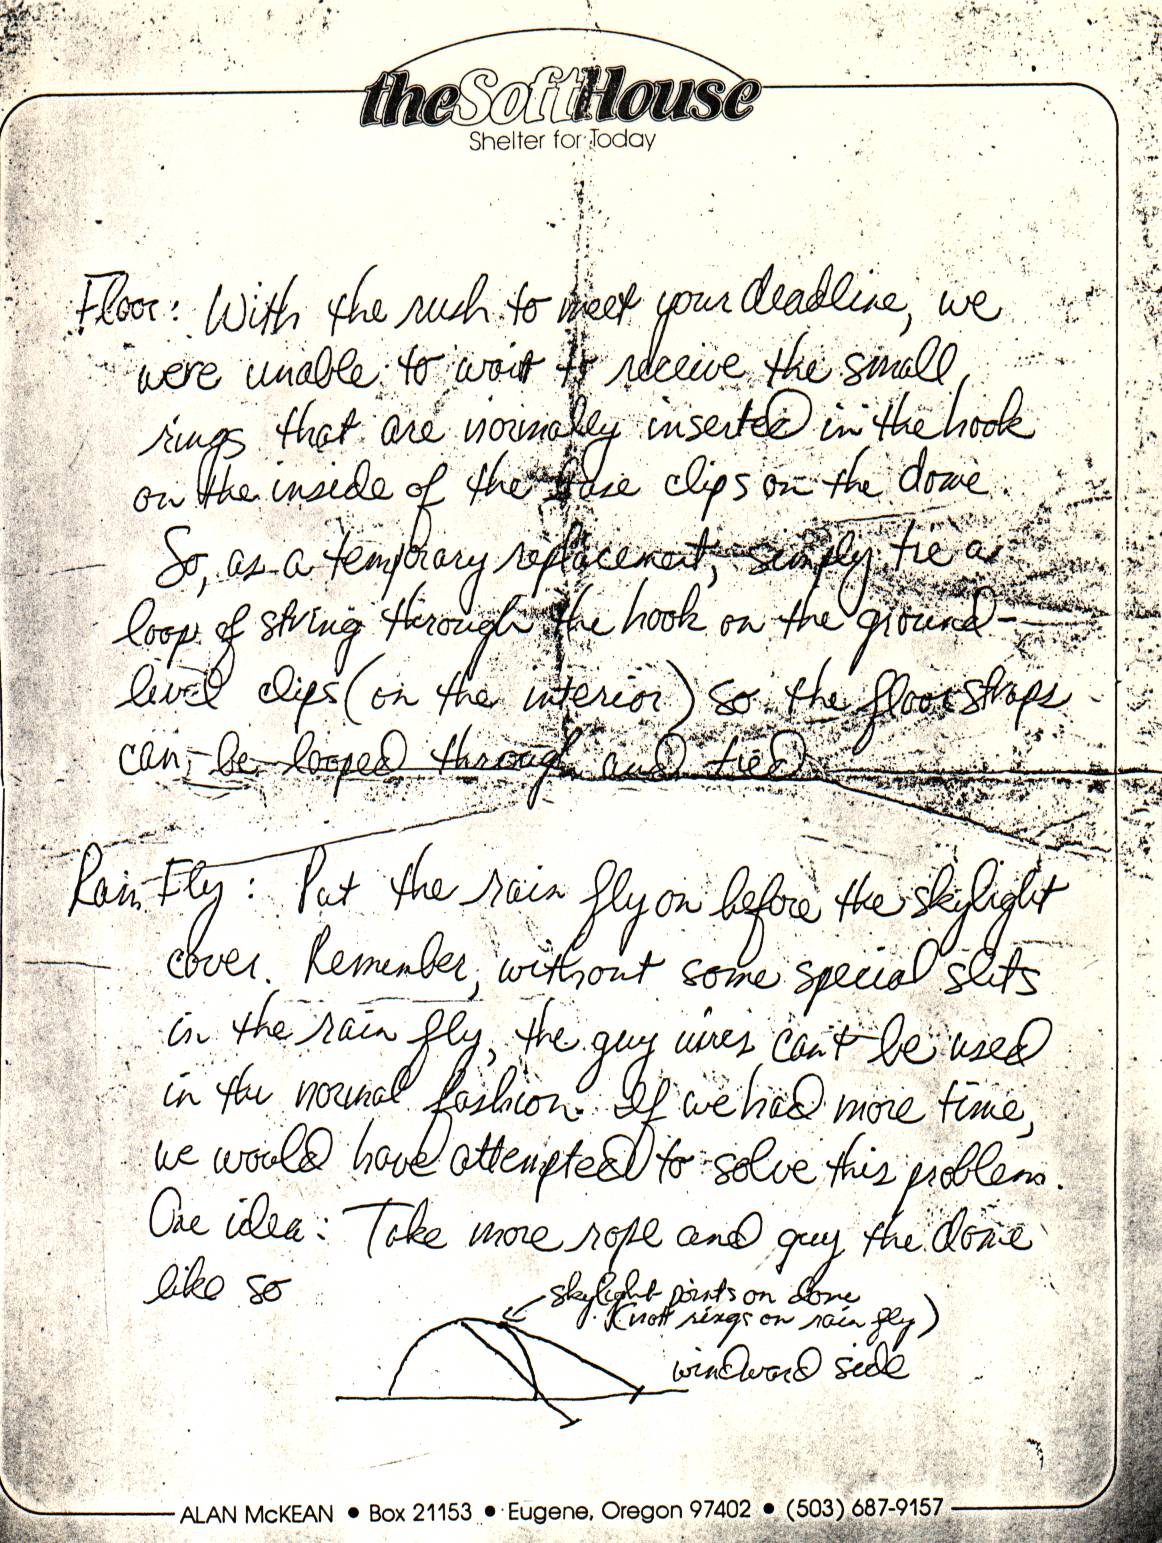 theSoftHouse
Shelter for Today
Floor: With the rush to meet your deadline, we
were unable to wait to receive the small
rings that are normally inserted in the hook
on the inside of the base clips on the dome.
So, as a temporary replacement, simply tie a
loop of string through the hook on the ground-
level clips (on the interior) so the floor straps
can be looped through and tied.
Rain Fly: Put the rain fly on before the skylight
cover. Remember, without some special slits
in the rain fly, the guy wires can't be used
in the normal fashion. If we had more time,
we would have attempted to solve this problem.
One idea: Take more rope and guy the dome
like so
skylight points on dome
(not rings on rain fly)
windward side
ALAN McKEAN • Box 21153 • Eugene, Oregon 97402 • (503) 687-9157